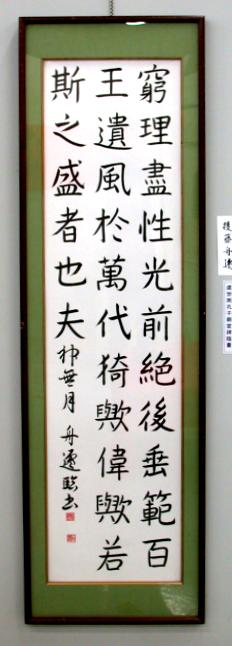 窮理盡性光前絶後垂範百
王遺風於萬代猗歟偉歟若
斯之盛者也夫 神無月 舟遷臨書
後藤舟遷